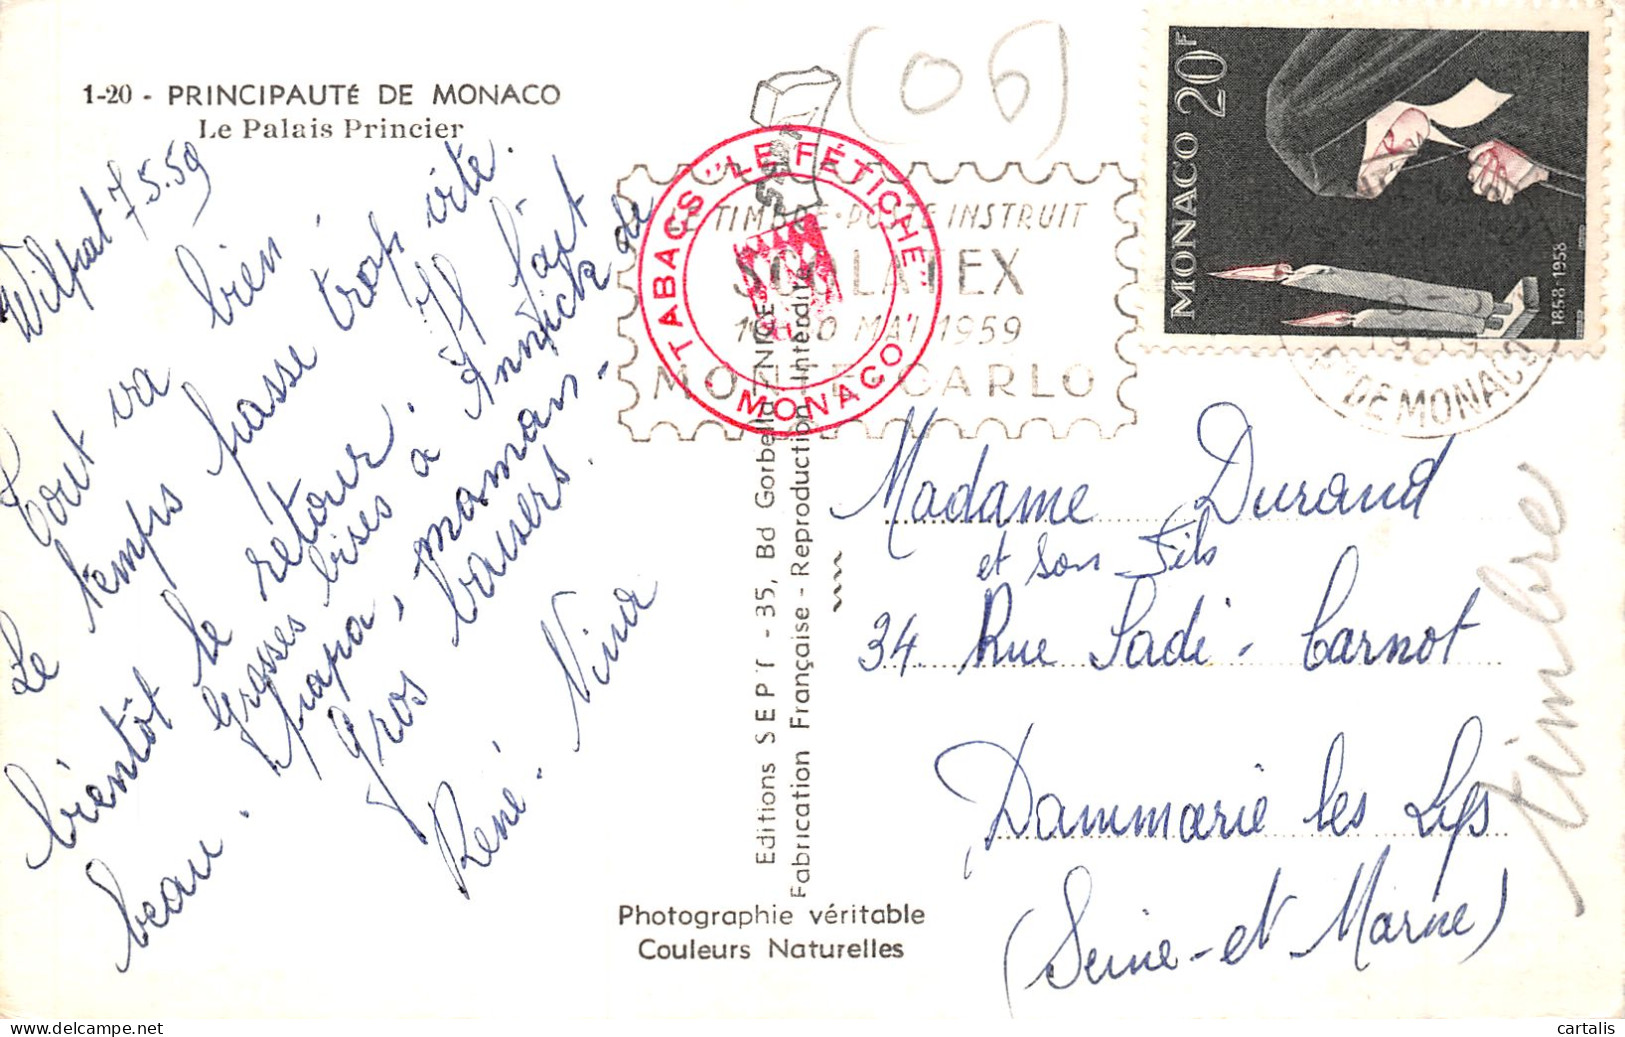 1-20 - PRINCIPAUTÉ DE MONACO
Le Palais Princier
7.5.59
Tout va bien.
Le temps passe trop vite.
bientôt le retour. Il fait
beau. Grosses bises à Annick de
papa, maman -
gros baisers.
René - Nina
(06)
TABACS "LE FÉTICHE"
MONACO
LE TIMBRE-POSTE INSTRUIT
SCOLATEX
MAI 1959
MONTE CARLO
MONACO 20F
1858-1958
Pté DE MONACO
Editions SEPT - 35, Bd Gorbella NICE
Fabrication Française - Reproduction Interdite
Madame Durand
et son fils
34 Rue Sadi-Carnot
Dammarie les Lys
(Seine-et Marne)
timbre
Photographie véritable
Couleurs Naturelles
cartalis